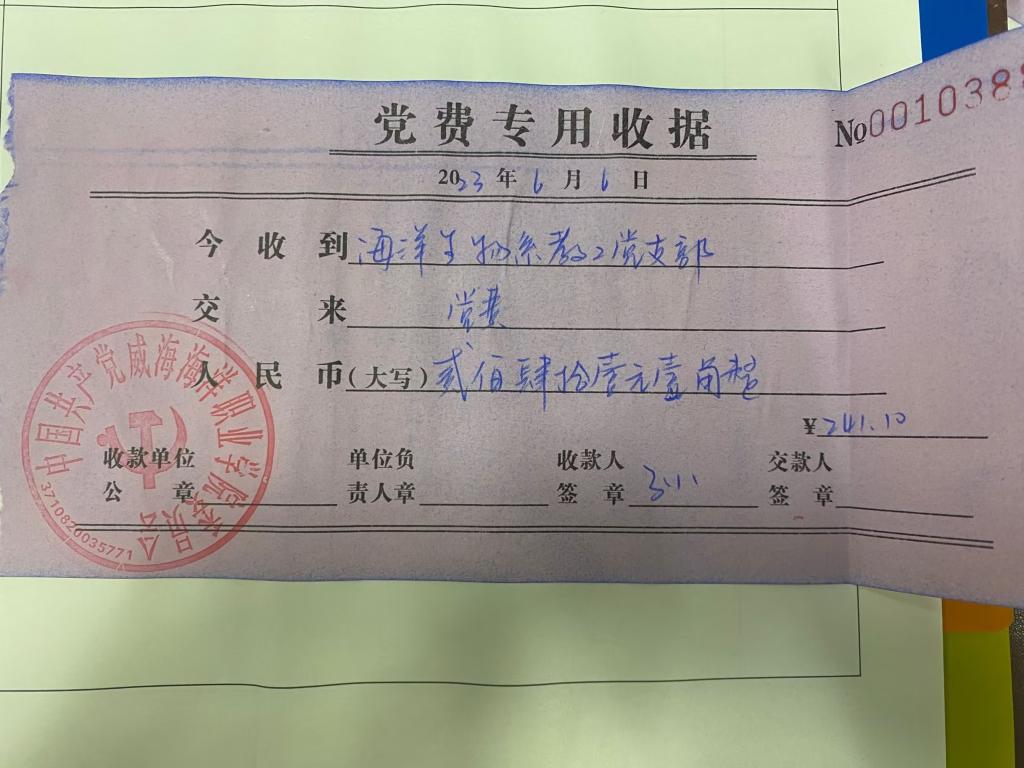 党费专用收据
№001038
2023年6月6日
今收到海洋生物系教工党支部
交来党费
人民币(大写)贰佰肆拾壹元壹角整
¥241.10
收款单位公章
单位负责人章
收款人签章
交款人签章
中国共产党威海海洋职业学院委员会
3710820035771